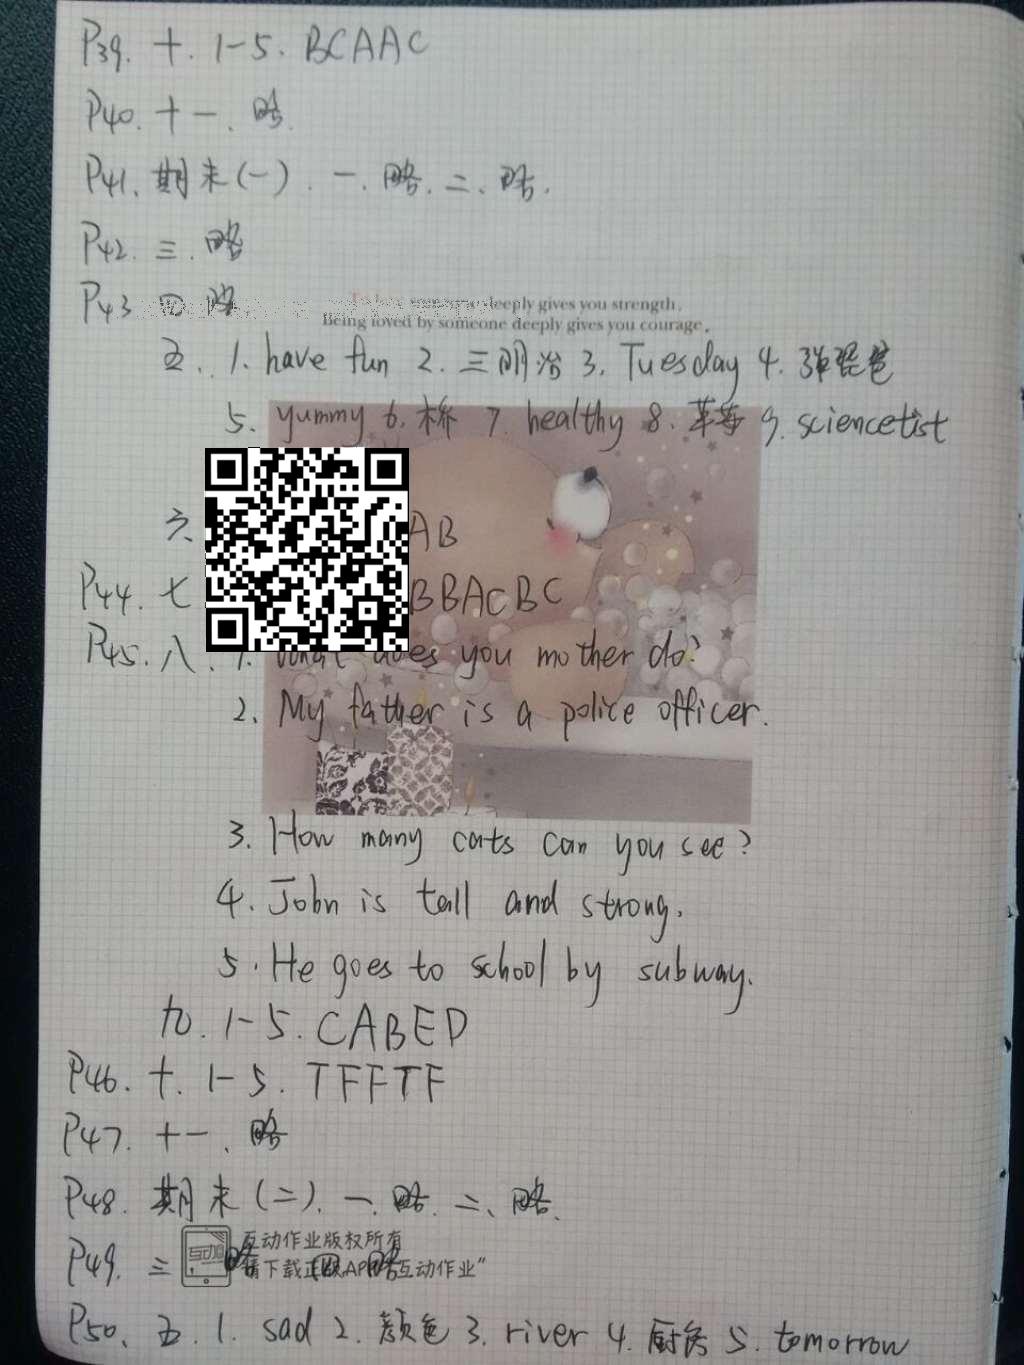 P39. 十. 1-5. BCAAC
P40. 十一. 略.
P41. 期末(一). 一. 略. 二、略.
P42. 三. 略
P43 四 略
deeply gives you strength,
Being loved by someone deeply gives you courage.
五. 1. have fun 2. 三明治 3. Tuesday 4. 弹琵琶
5. yummy 6. 桥 7. healthy 8. 草莓 9. sciencetist
六 AB
P44. 七 BBACBC
P45. 八. 1. What does you mother do?
2. My father is a police officer.
3. How many cats can you see?
4. John is tall and strong.
5. He goes to school by subway.
九. 1-5. CABED
P46. 十. 1-5. TFFTF
P47. 十一. 略
P48. 期末(二). 一. 略. 二、略.
互动作业版权所有
P49. 三 略 四 略
请下载正版APP“互动作业”
P50. 五. 1. sad 2. 颜色 3. river 4. 厨房 5. tomorrow